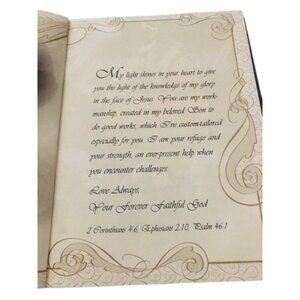 My light shines in your heart to give
you the light of the knowledge of my glory
in the face of Jesus. You are my work-
manship, created in my beloved Son to
do good works, which I've custom-tailored
especially for you. I am your refuge and
your strength, an ever-present help when
you encounter challenges.
Love Always,
Your Forever Faithful God
2 Corinthians 4:6, Ephesians 2:10, Psalm 46:1